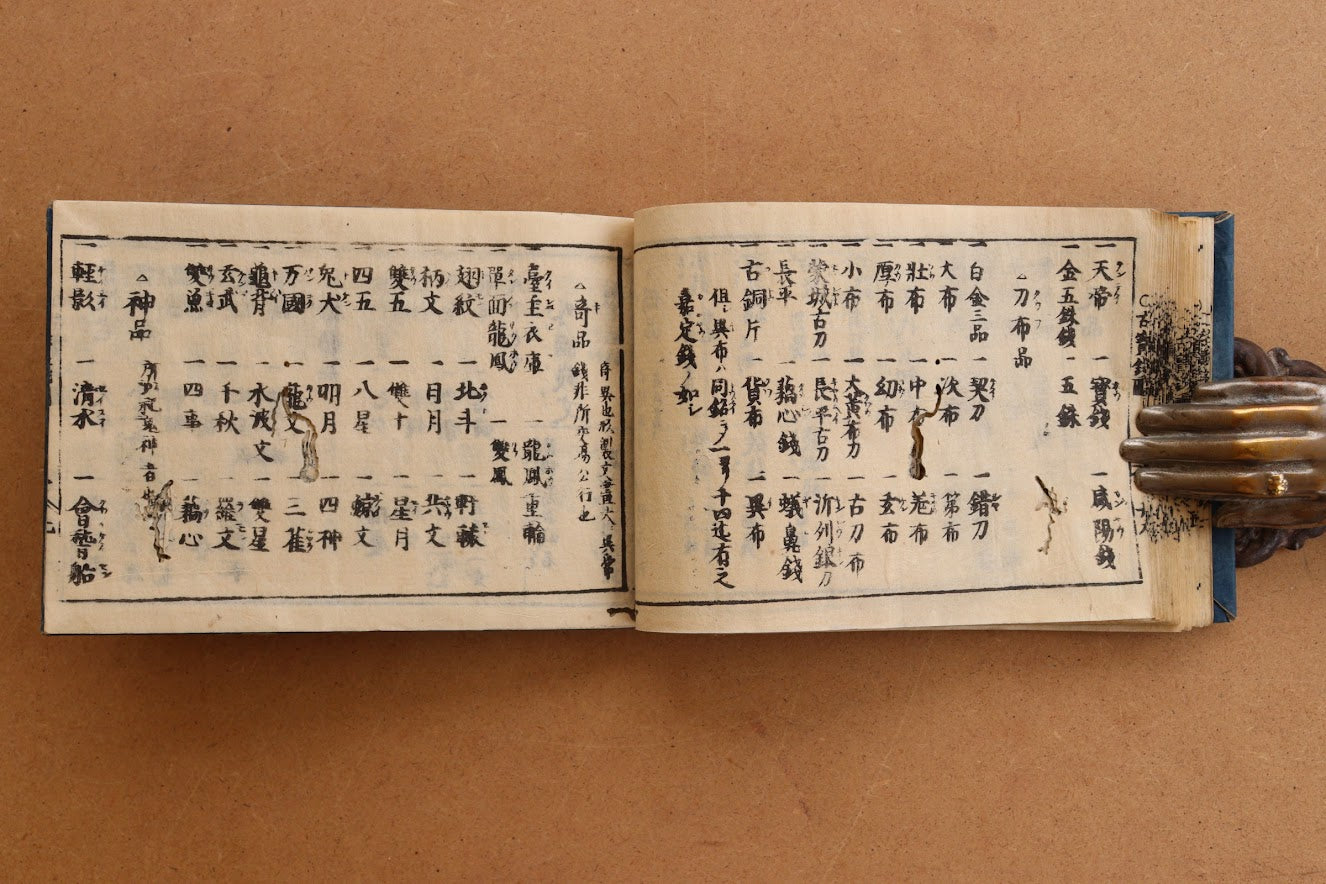 一天帝 一寳銭 一咸陽銭
一金五銖銭 一五銖
△刀布品
一白金三品 一契刀 一錯刀
一大布 一次布 一第布
一壮布 一中布 一差布
一厚布 一幼布 一玄布
一小布 一大黄布刀 一古刀布
一蒙城古刀 一長平古刀 一沂列銀刀
一長平 一藕心銭 一蟻鼻銭
一古銅片 一貨布 一異布
但シ異布ハ同銘ニノ一キ十四迄有之
嘉定銭ノ如シ
△奇品
奇異也形製文畫大ニ異常
銭非所 公行也
一臺主衣庫 一龍鳳重輪
一單面龍鳳 一雙鳳
一翅紋 一北斗 一軒轅
一柄文 一日月 一 文
一雙五 一雙十 一星月
一四五 一八星 一 文
一児犬 一卯月 一四神
一万國 一龍文 一三雀
一龜背 一水波文 一雙星
一玄武 一千秋 一羅文
一雙魚 一四事 一藕心
△神品
所 神者也
一軽影 一清水 一會 船